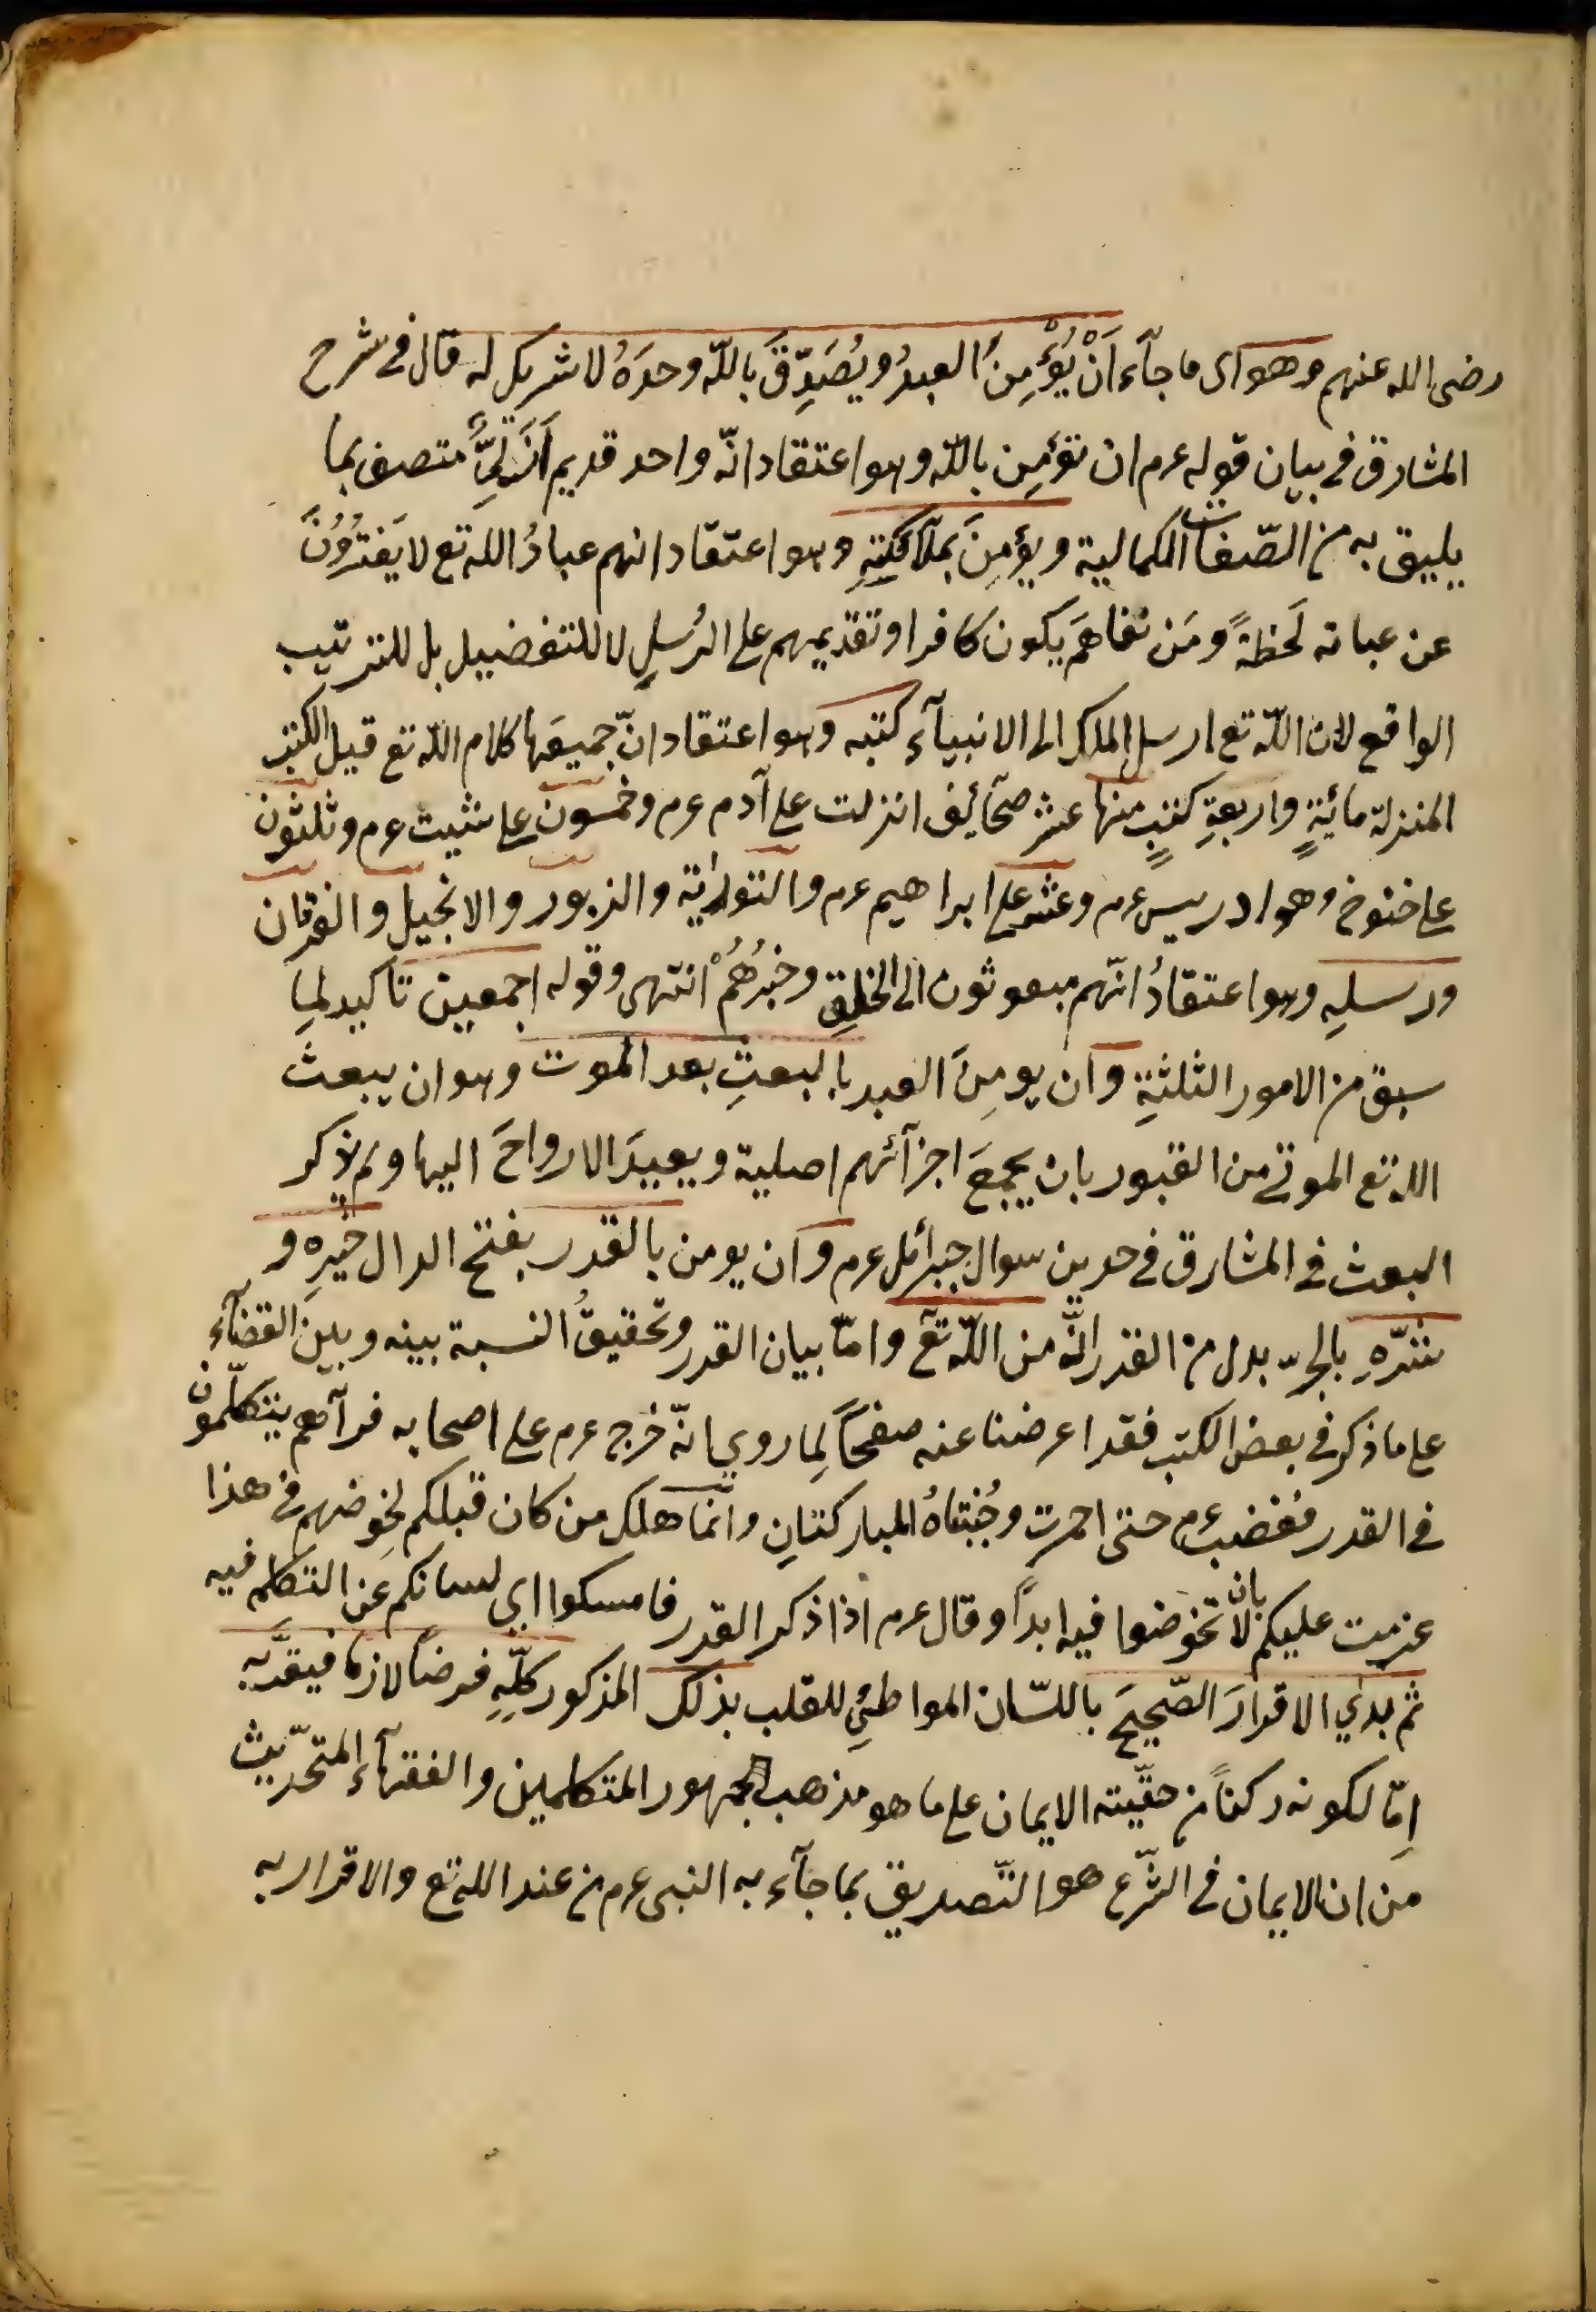 رضى الله عنهم وهو اى ما جآء اَنْ يُؤْمِنَ العبدُ ويُصَدِّقَ باللّه وحدَهُ لا شريك له قال فى شرح
المشارق فى بيان قوله عرم ان تؤمِن باللّه وهو اعتقاد انّه واحد قديم اَزَلِىٌّ متصف بما
يليق به من الصّفات الكمالية ويؤمِنَ بملآئكتِهِ وهو اعتقاد انهم عبادُ الله تع لا يَفتُرُونَ
عن عباته لَحظةً ومَن نفاهَم يكون كافرا وتقديمهم على الرُسلِ لا للتفضيل بل للترتيب
الواقع لان اللّه تع ارسل الملك الى الانبيآء كتبه وهو اعتقاد انّ جميعَها كلام اللّه تع قيل الكتب
المنزلة مائةٍ واربعةِ كتبٍ منها عشر صحآئف انزلت على آدم عرم وخمسون على شيث عرم وثلثون
على خنوخ وهو ادريس عرم وعشر على ابراهيم عرم والتوارية والزبور والانجيل والفرقان
ورسلِهِ وهو اعتقادُ انّهم مبعوثون الى الخلقِ وخبرُهُمْ انتهى وقوله اجمعين تاكيد لِما
سبق من الامور الثلثةِ وان يومِنَ العبد بالبعثِ بعد الموت وهو ان يبعث
الله تع الموتى من القبور بان يجمعَ اجزآئهم اصلية ويعيدَ الارواحَ اليها ولم يذكر
البعث فى المشارق فى حدين سوال جبرائل عرم وان يومن بالقدر بفتح الدال خيرِه و
شرّهِ بالجرّ بدل من القدر انَّه من اللّه تع وامّا بيان القدر وتحقيقُ النسبة بينه وبينَ القضآءِ
على ما ذكر فى بعض الكتب فقد اعرضنا عنه صفحًا لِما روي انّه خرج عرم على اصحابه فرآهم يتكلّمون
فى القدر فغضب عرم حتى احمرت وجْنتاهُ المباركتانِ وانّما هلك من كان قبلكم لخِوضهم فى هذا
عزمت عليكم بان لا تخوضوا فيه ابداً وقال عرم اذا ذكر القدر فامسكوا اي لسانكم عن التكلم فيه
ثم بدي الاقرارَ الصّحيحَ باللسّان المواطئِ للقلب بذلك المذكور كلِّهِ فرضًا لازما فيقدَّبه
اِمّا لكونه ركناً من حقيّته الايمان على ما هو مذهب الجمهور المتكلمين والفقهآء المتحدّيث
من ان الايمان فى الشّرع هو التّصديق بما جآء به النبى عرم من عند الله تع والاقرار به